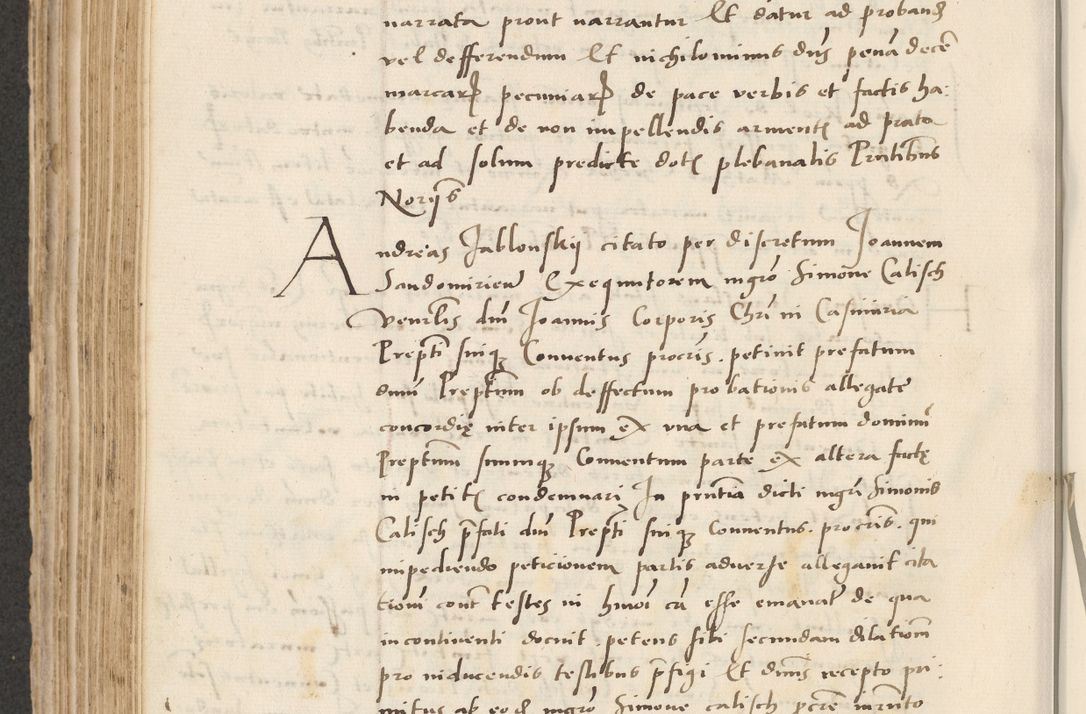 narrata prout narrantur Et datur ad proband
vel defferendum Et nichilominus dns pena decē
marcarȝ pecuniarȝ de pace verbis et factis ha:
benda et de non impellendis arment̄ ad prata
et ad solum predicte dotꝭ plebanalis Pntibus
Norȳs
Andreas Jablonskij citato per discretum Joannem
Sandomirien Exequutorem mgrō Simone Calisch
venrlis dni Joannis Corporis Chri in Casimiria
Prepti suiqȝ Conventus procris. petivit prefatum
dnm Preptum ob deffectum probationis allegate
concordię inter ipsum ex vna et prefatum dominū
Preptum suumqȝ Conventum parte ex altera factę
in petitꝭ condemnari In pntia dicti mgri Simonis
Calisch pfati dni Prepti suiqȝ Conventus. procris. qui
impediendo peticionem partis adverse allegavit cita
tionē cont testes in hmōi cā esse emanat̄ de qua
incontinenti docuit. petens sibi secundam dilationē
pro inducendis testibus pfigi Et dnus recepto pri:
mitus ab eod mgrō Simone calisch pcre iurnto